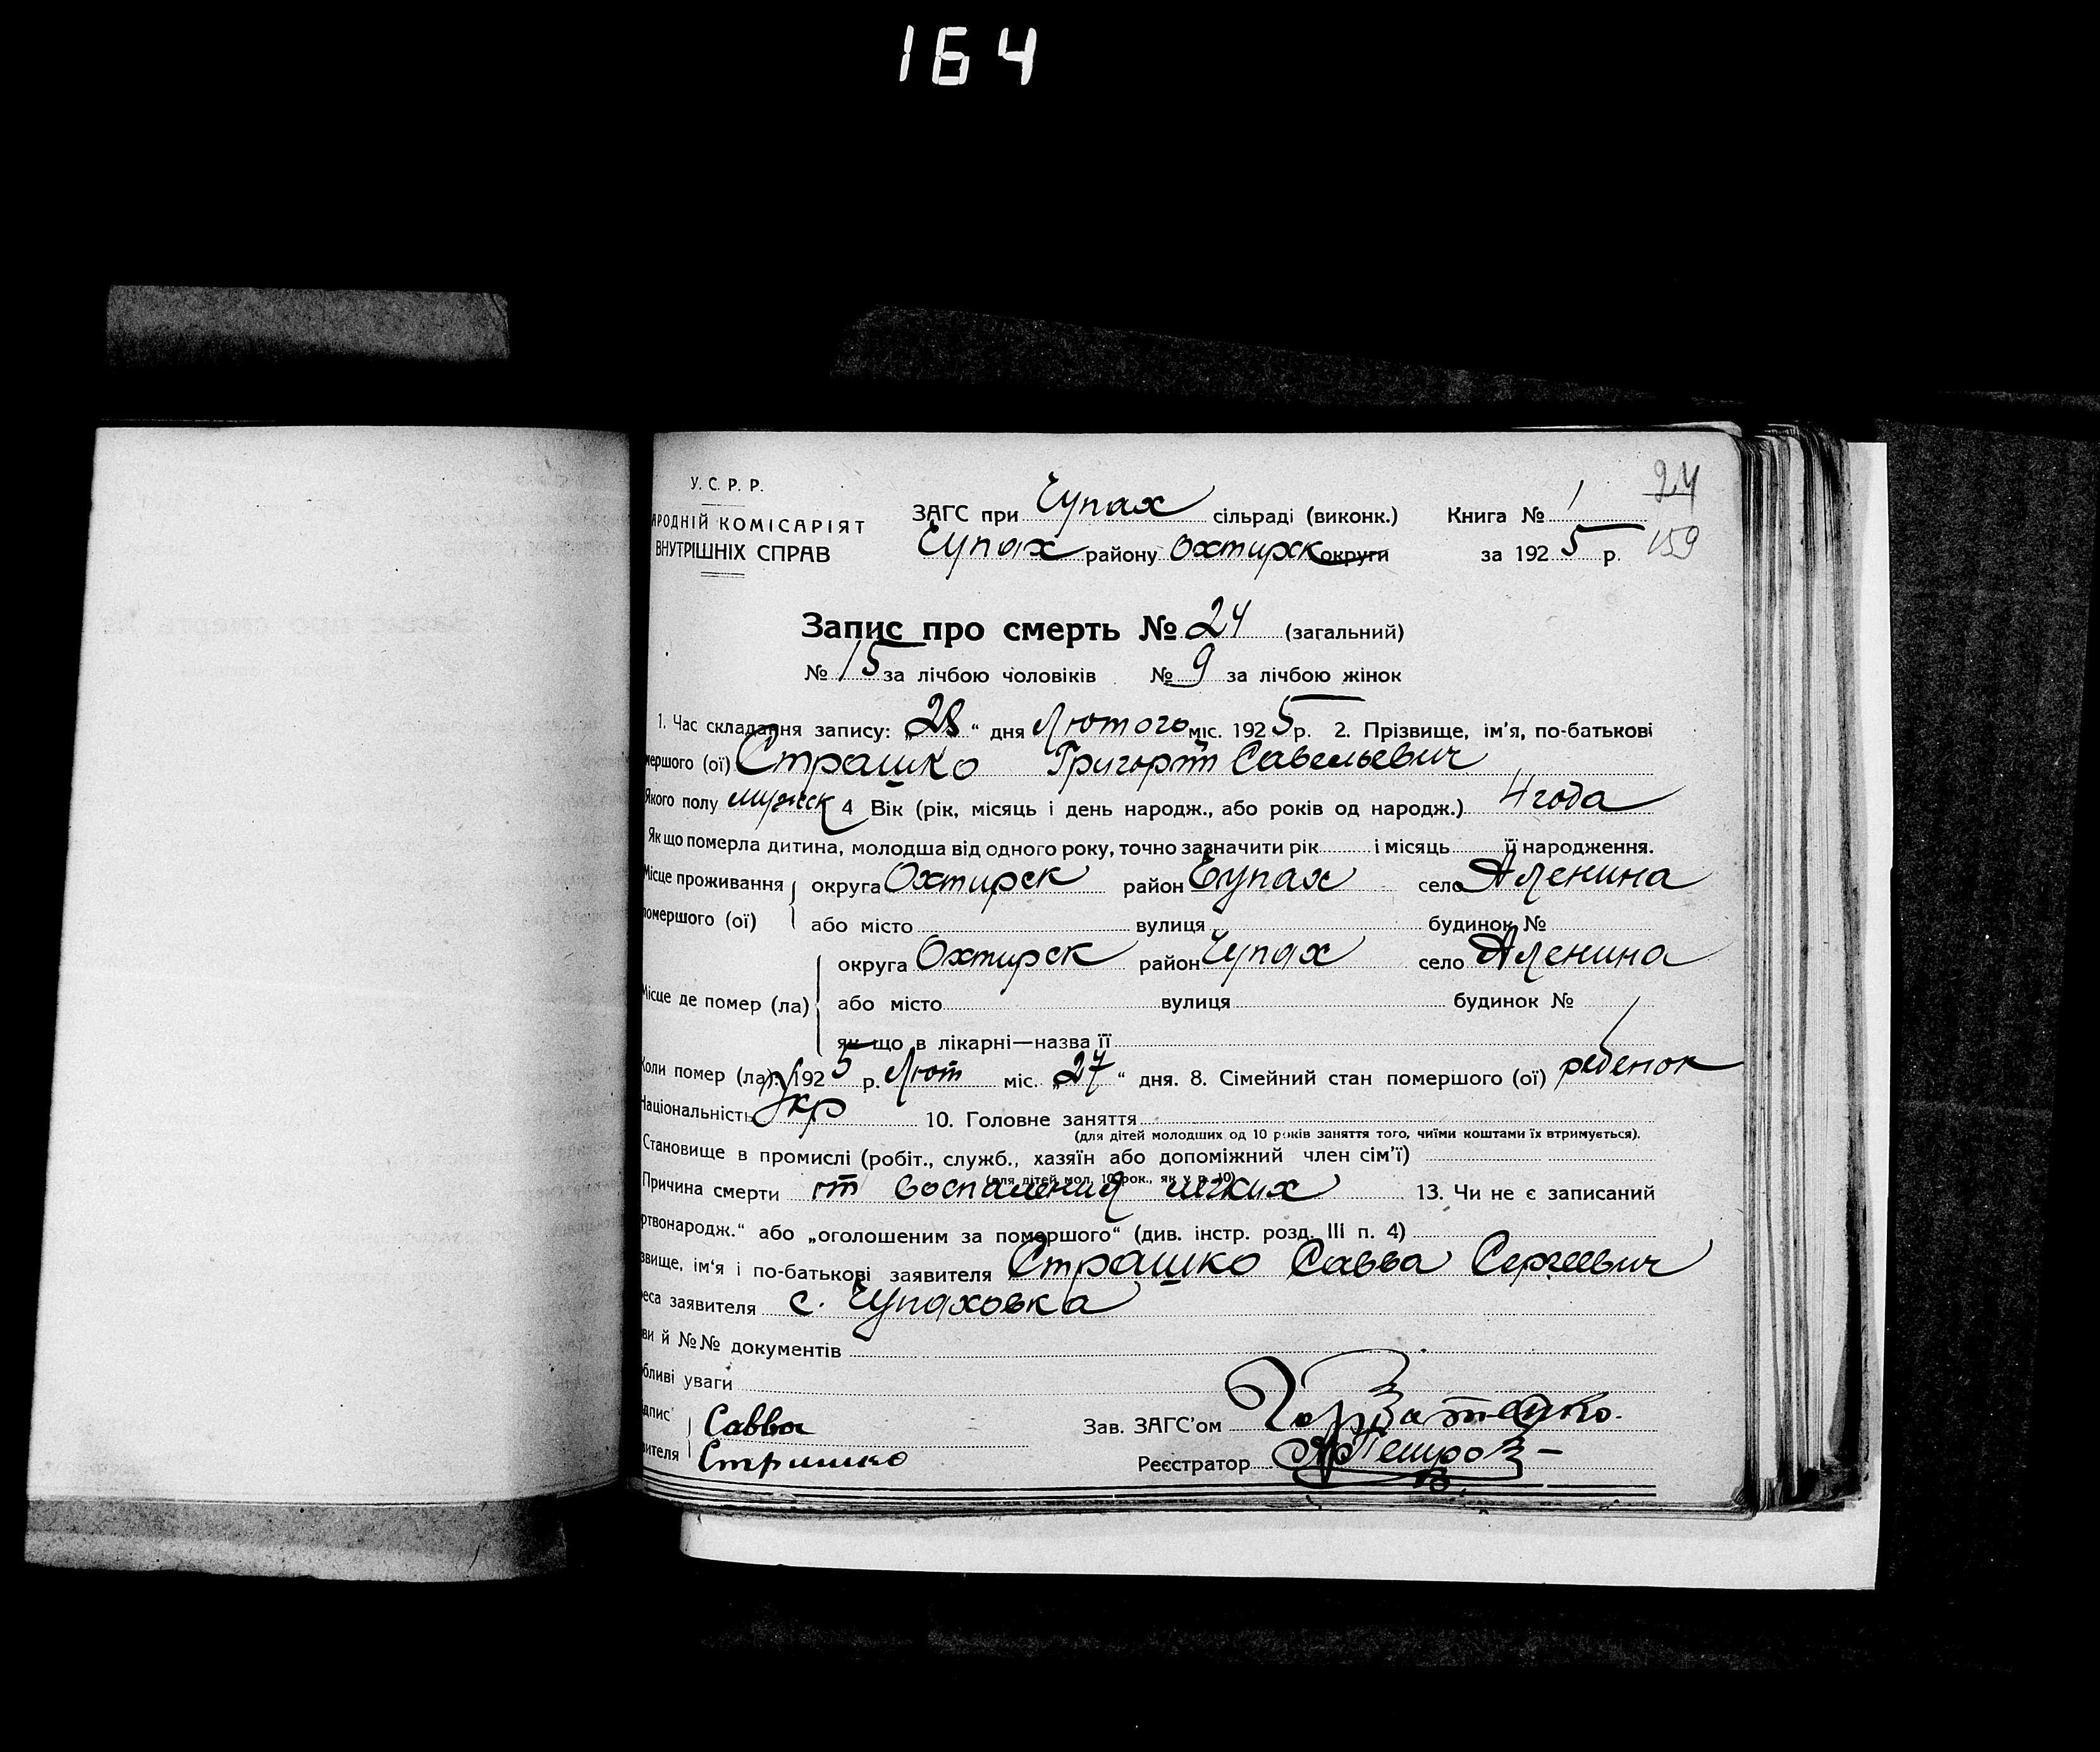 164
24
У. С. Р. Р.
АРОДНІЙ КОМІСАРІЯТ
ВНУТРІШНІХ СПРАВ
ЗАГС при Чупах сільраді (виконк.) Книга № 1
Чупах району Охтирск округи за 1925 р. 159
Запис про смерть № 24 (загальний)
№ 15 за лічбою чоловіків № 9 за лічбою жінок
1. Час складання запису: „28“ дня Лютого міс. 1925 р. 2. Прізвище, ім'я, по-батькові
мершого (ої) Страшко Григорий Савельевич
Якого полу мужск 4 Вік (рік, місяць і день народж., або років од народж.) 4 года
Як що померла дитина, молодша від одного року, точно зазначити рік і місяць її народження.
Місце проживання округа Охтирск район Чупах село Аленина
помершого (ої) або місто вулиця будинок №
округа Охтирск район Чупах село Аленина
Місце де помер (ла) або місто вулиця будинок №
як що в лікарні—назва її
Коли помер (ла): 1925 р. Лют міс. „27“ дня. 8. Сімейний стан помершого (ої) ребенок
Національність Укр 10. Головне заняття
(для дітей молодших од 10 років заняття того, чиїми коштами їх втримується).
Становище в промислі (робіт., служб., хазяїн або допоміжний член сім'ї)
(для дітей мол. 10 рок., як у п. 10)
Причина смерти от воспаления легких 13. Чи не є записаний
ртвонародж.“ або „оголошеним за помершого“ (див. інстр. розд. III п. 4)
звище, ім'я і по-батькові заявителя Страшко Савва Сергеевич
еса заявителя с. Чупаховка
ви й №№ документів
бливі уваги
дпис Савва
вителя Страшко
Зав. ЗАГС'ом
Реєстратор